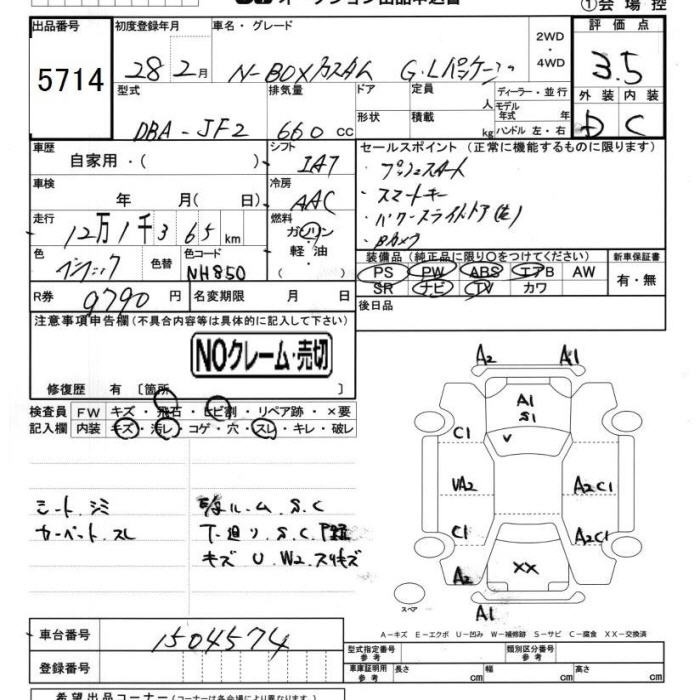 ①会場控
出品番号
5714
初度登録年月
28 2月
車名・グレード
N-BOXカスタム G.Lパッケージ
2WD
・
4WD
評価点
3.5
外装 内装
D C
型式
DBA-JF2
排気量
660 cc
ドア
形状
定員
人
積載
kg
ディーラー・並行
モデル
年式 年
ハンドル 左・右
車歴
自家用・( )
シフト
IAT
セールスポイント (正常に機能するものに限ります)
・プッシュスタート
・スマートキー
・パワースライドドア(左)
・Bカメラ
車検
年 月( 日)
冷房
AAC
走行
12万1千365km
燃料
ガソリン
軽・油
色
色替
色コード
NH850
装備品 (純正品に限り○をつけてください)
PS PW ABS エアB AW
SR ナビ TV カワ
新車保証書
有・無
R券
9790円
名変期限 月 日
後日品
注意事項申告欄 (不具合内容等は具体的に記入して下さい)
NOクレーム・売切
修復歴 有 〔箇所 〕
検査員
記入欄
FW キズ・飛石・ヒビ割・リペア跡・×要
内装 キズ・汚レ・コゲ・穴・スレ・キレ・破レ
シート、シミ
カーペット、スレ
ルーム、S、C
下廻り、S、C
キズ U W2 スリキズ
A2 A1
A1
S1
C1
V
VA2
A2C1
C1
A2C1
A2
XX
A1
スペア
A-キズ E-エクボ U-凹み W-補修跡 S-サビ C-腐食 XX-交換済
車台番号
1504574
登録番号
型式指定番号
参考
類別区分番号
参考
車庫証明用
参考
長さ cm
幅 cm
高さ cm
希望出品コーナー(コーナーは各会場により異なります)